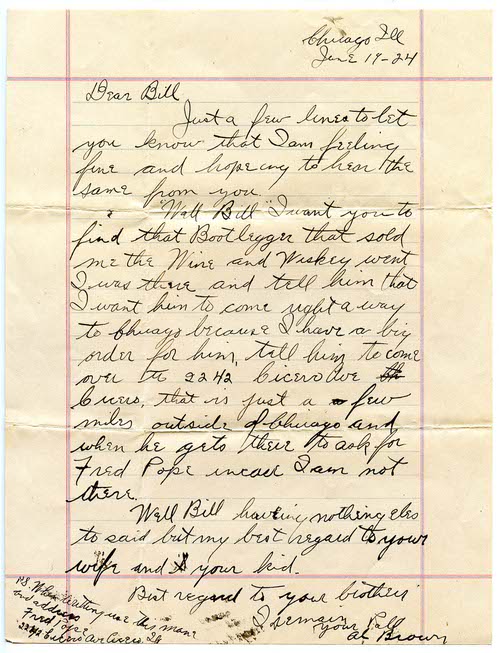 Chicago Ill
June 19-24
Dear Bill
Just a few lines to let
you know that I am feeling
fine and hopeing to hear the
same from you.
"Wall Bill" I want you to
find that Bootlegger that sold
me the Wine and Wiskey went
I was there and tell him that
I want him to come right a way
to Chicago because I have a big
order for him, tell him to come
over to 2242 Cicero Ave
Cicero, that is just a few
miles outside of Chicago and
when he gets their to ask for
Fred Pope incase I am not
there.
Well Bill haveing nothing eles
to said but my best regard to your
wife and your kid.
Best regard to your brother
I remain
your Pall
Al Brown
P.S. When writing use this name
and address
Fred Pope
2242 Cicero Ave Cicero, Ill